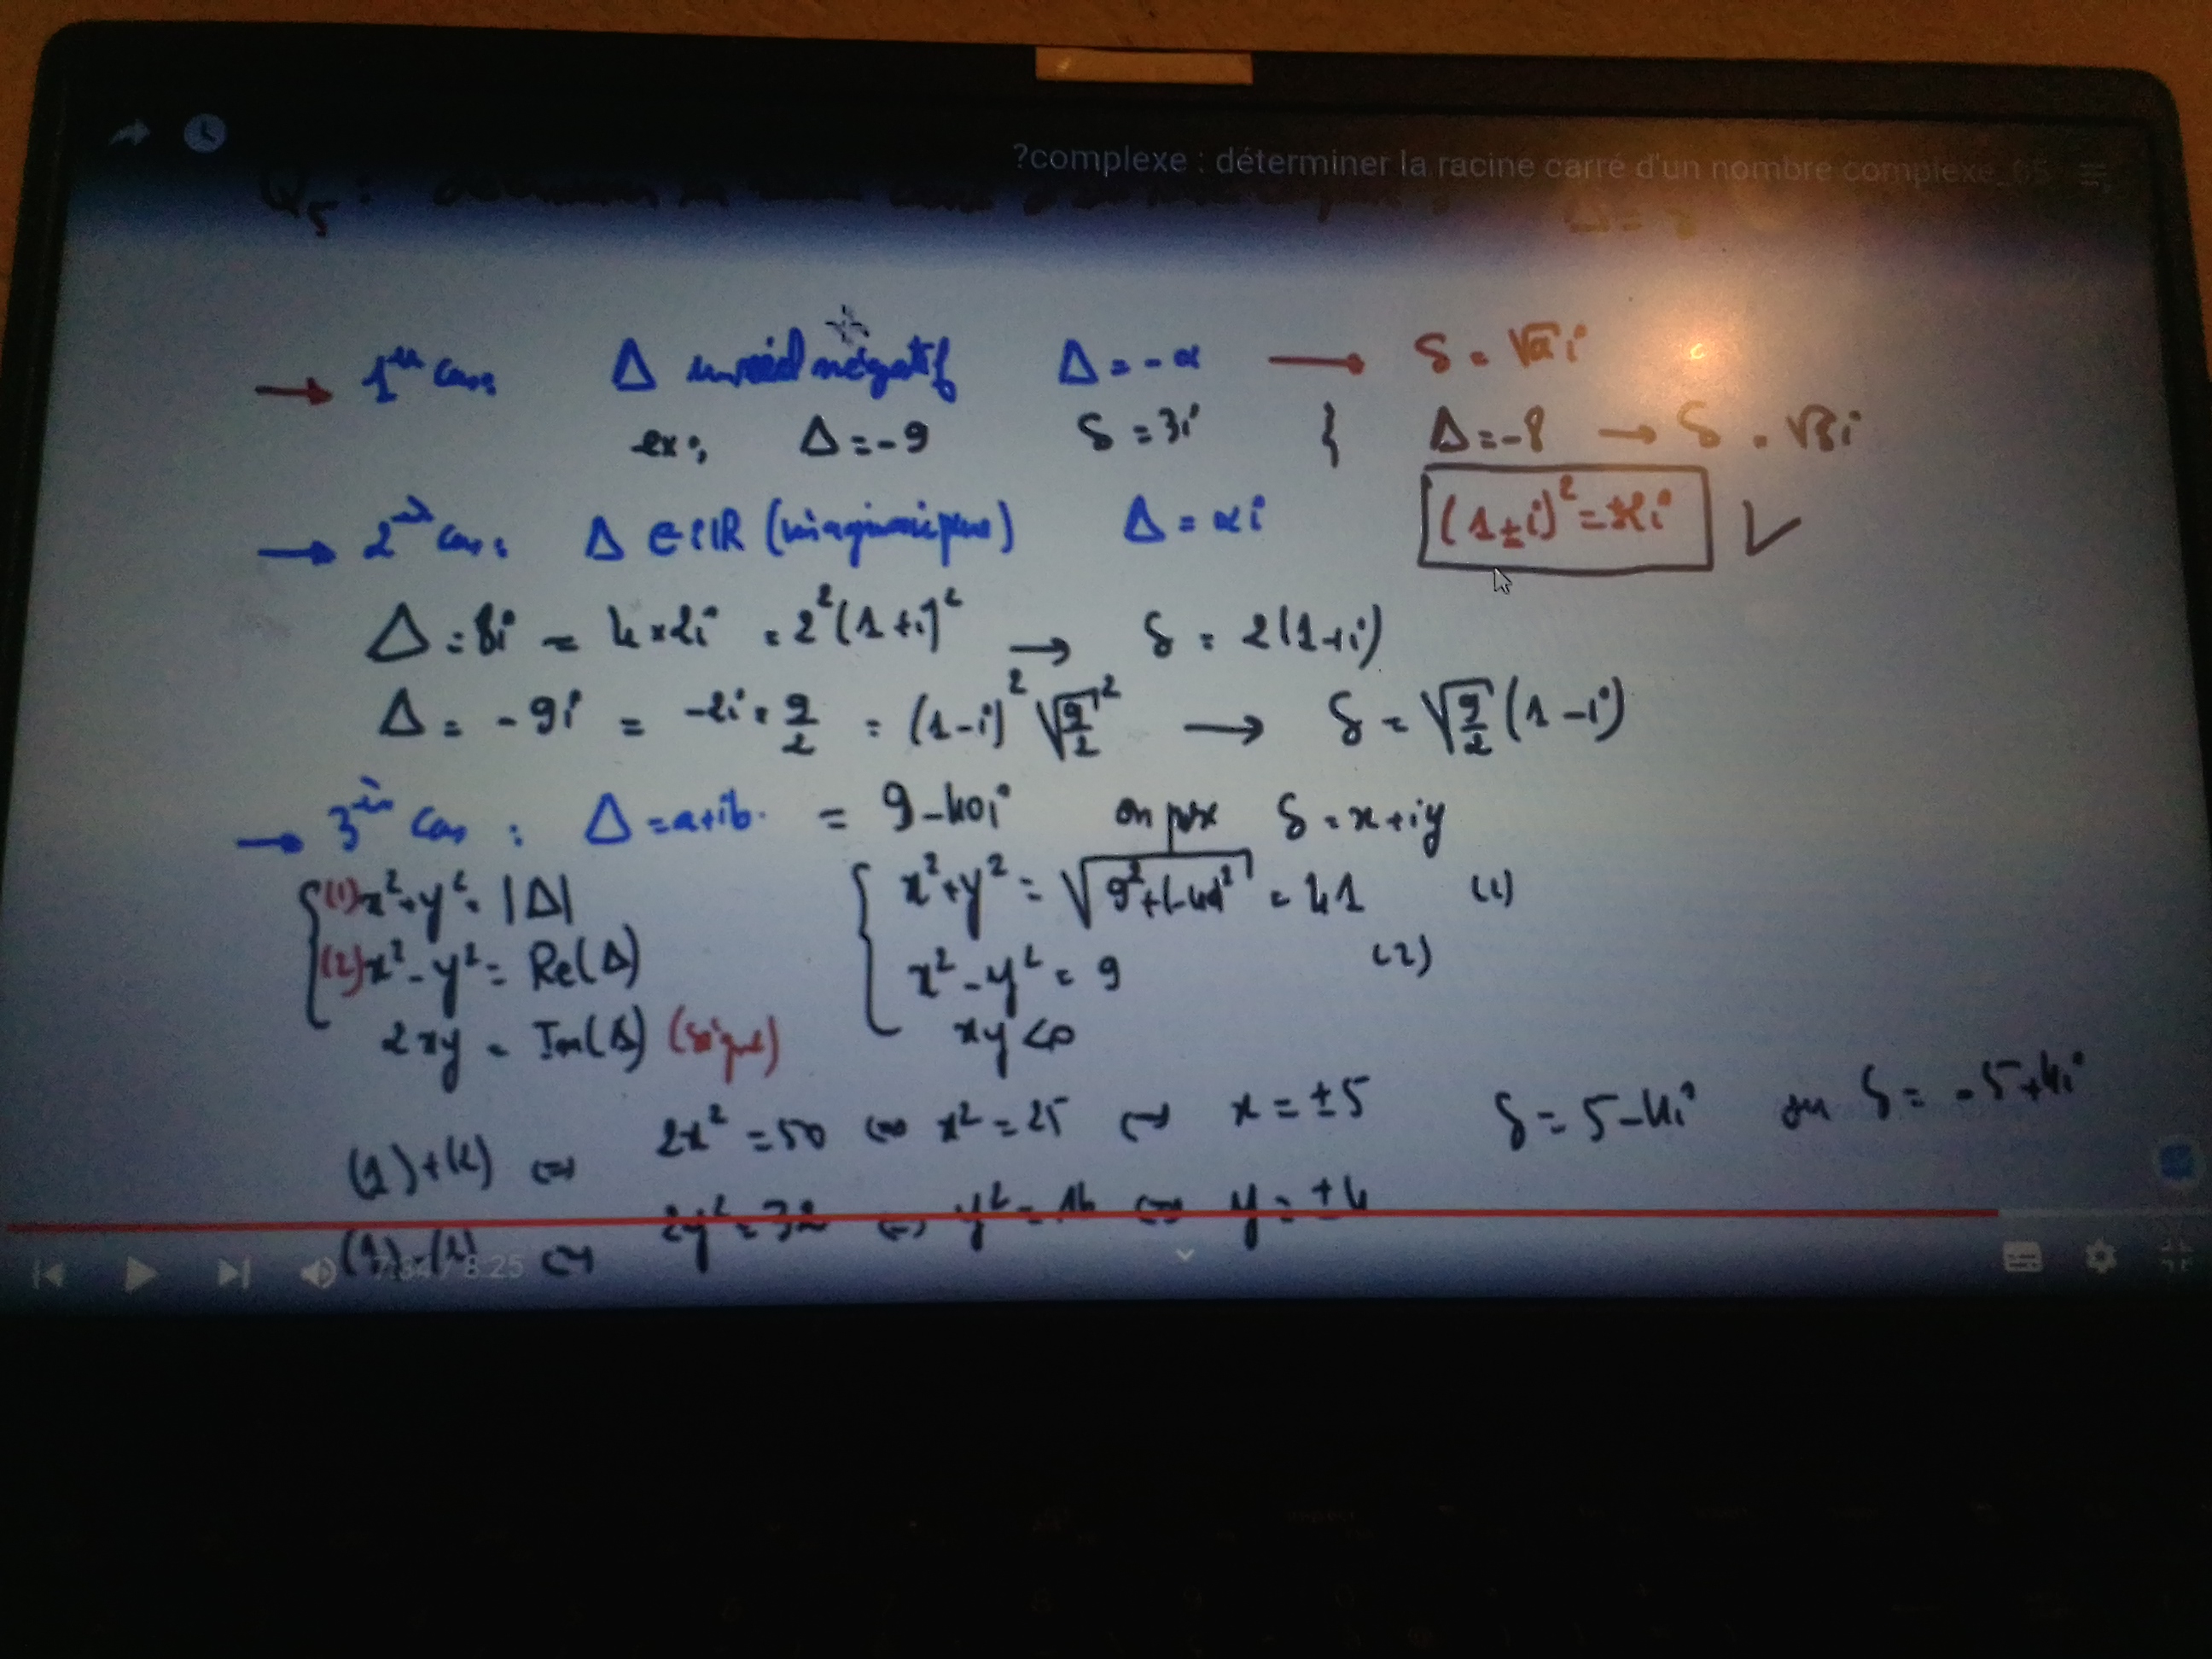 ?complexe : déterminer la racine carré d'un nombre complexe_65
Q5 :
→ 1er cas: Δ un réel négatif Δ = -α → δ = √α i
ex: Δ = -9 δ = 3i } Δ = -8 → δ = √8 i
→ 2ème cas: Δ ∈ iIR (imaginaire pur) Δ = αi (1±i)² = ±2i ✓
Δ = 8i = 4×2i = 2²(1+i)² → δ = 2(1+i)
Δ = -9i = -2i × 9/2 = (1-i)² √(9/2)² → δ = √(9/2) (1-i)
→ 3ème cas : Δ = a+ib. = 9-40i on pose δ = x+iy
(1) x²+y² = |Δ| x²+y² = √(9²+(-40)²) = 41 (1)
(2) x²-y² = Re(Δ) x²-y² = 9 (2)
2xy = Im(Δ) (signe) xy <0
(1)+(2) ⇔ 2x² = 50 ⇔ x² = 25 ⇔ x = ±5 δ = 5-4i ou δ = -5+4i
(1)-(2) ⇔ 2y² = 32 ⇔ y² = 16 ⇔ y = ±4
/ 8:25